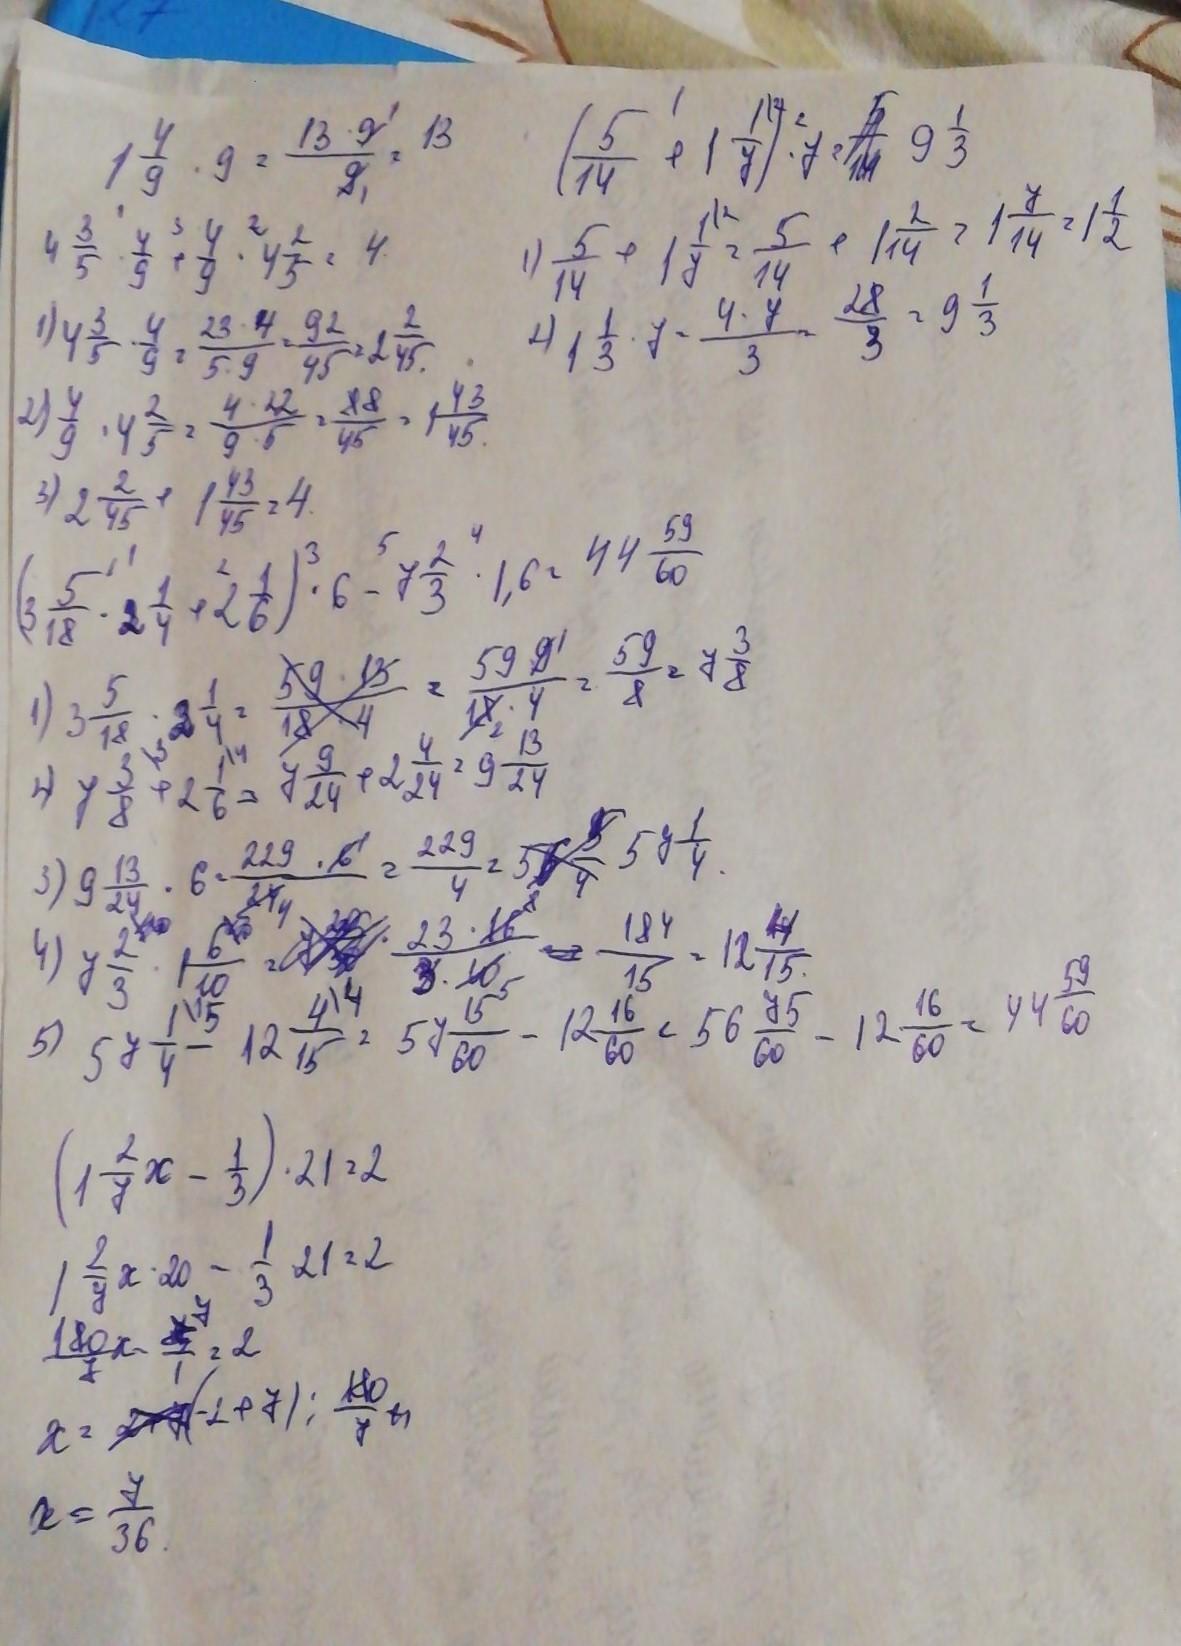 1 4/9 · 9 = 13 · 9/9 = 13
4 3/5 · 4/9 + 4/9 · 4 2/5 = 4
1) 4 3/5 · 4/9 = 23 · 4/5 · 9 = 92/45 = 2 2/45.
2) 4/9 · 4 2/5 = 4 · 22/9 · 5 = 88/45 = 1 43/45.
3) 2 2/45 + 1 43/45 = 4.
(5/14 + 1 1/7) · 7 = 9 1/3
1) 5/14 + 1 1/7 = 5/14 + 1 2/14 = 1 7/14 = 1 1/2
2) 1 1/3 · 7 = 4 · 7/3 = 28/3 = 9 1/3
(3 5/18 · 2 1/4 + 2 1/6) · 6 - 7 2/3 · 1,6 = 44 59/60
1) 3 5/18 · 2 1/4 = 59 9/18 · 4 = 59/8 = 7 3/8
2) 7 3/8 + 2 1/6 = 7 9/24 + 2 4/24 = 9 13/24
3) 9 13/24 · 6 = 229 · 6/24 = 229/4 = 57 1/4.
4) 7 2/3 · 1 6/10 = 23 · 16/3 · 10 = 184/15 = 12 4/15.
5) 57 1/4 - 12 4/15 = 57 15/60 - 12 16/60 = 56 75/60 - 12 16/60 = 44 59/60
(1 2/7 x - 1/3) · 21 = 2
1 2/7 x · 20 - 1/3 · 21 = 2
180/7 x - 7/1 = 2
x = (-2 + 7) : 180/7
x = 7/36.